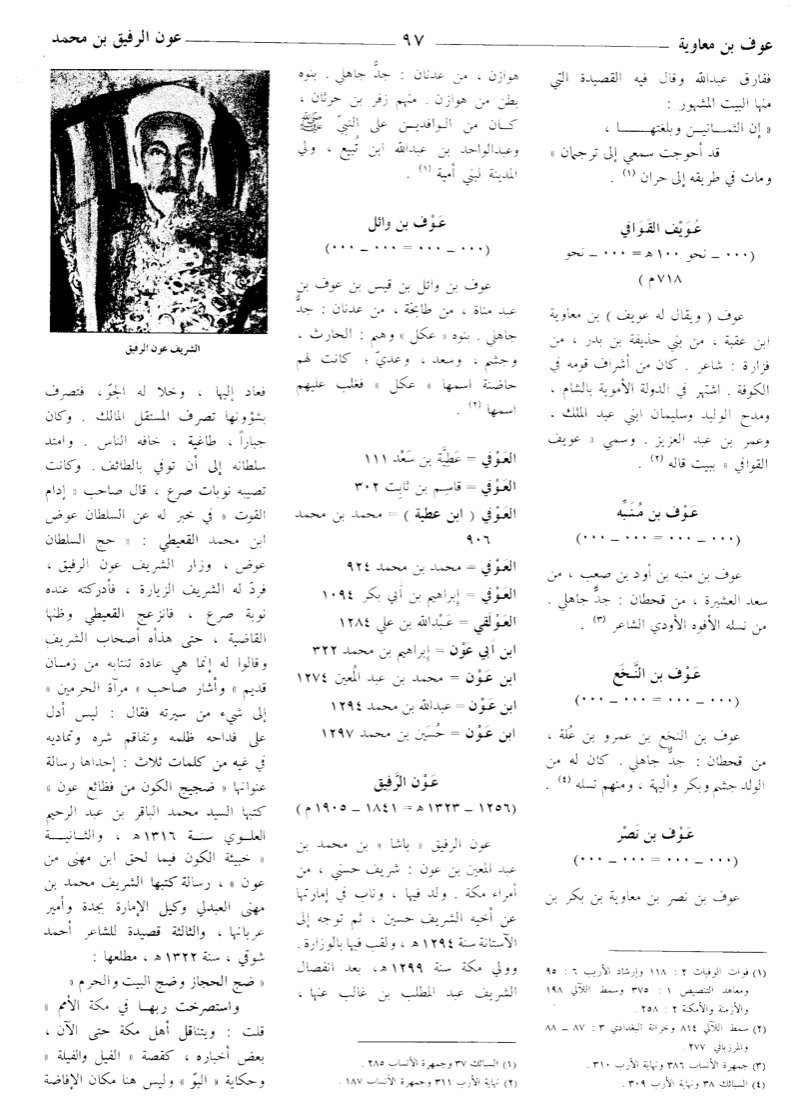 عوف بن معاوية ٩٧ عون الرفيق بن محمد
ففارق عبدالله وقال فيه القصيدة التي
منها البيت المشهور :
« إن الثمانيـن وبلغتهــا ،
قد أحوجت سمعي إلى ترجمان »
ومات في طريقه إلى حران (١) .
عُوَيْف القَوَافي
(٠٠٠ ـ نحو ١٠٠ ه = ٠٠٠ ـ نحو
٧١٨ م )
عوف ( ويقال له عويف ) بن معاوية
ابن عقبة ، من بني حذيفة بن بدر ، من
فزارة : شاعر . كان من أشراف قومه في
الكوفة . اشتهر في الدولة الأموية بالشام ،
ومدح الوليد وسليمان ابني عبد الملك .
وعمر بن عبد العزيز . وسمي « عويف
القوافي » ببيت قاله (٢) .
عَوْف بن مُنَبِّه
(٠٠٠ ـ ٠٠٠ = ٠٠٠ ـ ٠٠٠)
عوف بن منبه بن أود بن صعب ، من
سعد العشيرة ، من قحطان : جدٌّ جاهلي .
من نسله الأفوه الأودي الشاعر (٣) .
عَوْف بن النَّخَع
(٠٠٠ ـ ٠٠٠ = ٠٠٠ ـ ٠٠٠)
عوف بن النخع بن عمرو بن عُلة ،
من قحطان : جدٌّ جاهلي . كان له من
الولد جشم وبكر وأليهة ، ومنهم نسله (٤) .
عَوْف بن نَصْر
(٠٠٠ ـ ٠٠٠ = ٠٠٠ ـ ٠٠٠)
عوف بن نصر بن معاوية بن بكر بن
(١) فوات الوفيات ٢ : ١١٨ وإرشاد الأريب ٦ : ٩٥
ومعاهد التنصيص ١ : ٣٧٥ وسمط اللآلي ١٩٨
والأزمنة والأمكنة ٢ : ٢٥٨ .
(٢) سمط اللآلي ٨١٤ وخزانة البغدادي ٣ : ٨٧ ـ ٨٨
والمرزباني ٢٧٧ .
(٣) جمهرة الأنساب ٣٨٦ ونهاية الأرب ٣١٠ .
(٤) السبائك ٣٨ ونهاية الأرب ٣٠٩ .
هوازن ، من عدنان : جدٌّ جاهلي . بنوه
بطن من هوازن . منهم زفر بن حرثان ،
كـان من الوافديـن على النبيّ ﷺ
وعبدالواحد بن عبدالله ابن تُبيع ، ولي
المدينة لبني أمية (١) .
عَوْف بن وائل
(٠٠٠ ـ ٠٠٠ = ٠٠٠ ـ ٠٠٠)
عوف بن وائل بن قيس بن عوف بن
عبد مناة ، من طابخة ، من عدنان : جدٌّ
جاهلي . بنوه « عكل » وهم : الحارث ،
وجشم ، وسعد ، وعديّ ؛ كانت لهم
حاضنة اسمها « عكل » فغلب عليهم
اسمها (٢) .
العَوْفي = عَطِيَّة بن سَعْد ١١١
العَوْفي = قاسِم بن ثابِت ٣٠٢
العَوْفي ( ابن عطية ) = محمد بن محمد
٩٠٦
العَوْفي = محمد بن محمد ٩٢٤
العَوْفي = إبراهيم بن أبي بكر ١٠٩٤
العَوْلَقي = عَبْدالله بن علي ١٢٨٤
ابن أبي عَوْن = إبراهيم بن محمد ٣٢٢
ابن عَوْن = محمد بن عبد المُعين ١٢٧٤
ابن عَوْن = عبدالله بن محمد ١٢٩٤
ابن عَوْن = حُسَين بن محمد ١٢٩٧
عَوْن الرَّفيق
(١٢٥٦ ـ ١٣٢٣ ه = ١٨٤١ ـ ١٩٠٥ م )
عون الرفيق « باشا » بن محمد بن
عبد المعين بن عون : شريف حسني ، من
أمراء مكة . ولد فيها ، وناب في إمارتها
عن أخيه الشريف حسين ، ثم توجه إلى
الآستانة سنة ١٢٩٤ ه ، ولقب فيها بالوزارة .
وولي مكة سنة ١٢٩٩ ه، بعد انفصال
الشريف عبد المطلب بن غالب عنها ،
(١) السبائك ٣٧ وجمهرة الأنساب ٢٨٥ .
(٢) نهاية الأرب ٣١١ وجمهرة الأنساب ١٨٧ .
الشريف عون الرفيق
فعاد إليها ، وخلا له الجوّ، فتصرف
بشؤونها تصرف المستقل المالك . وكان
جباراً ، طاغية ، خافه الناس . وامتد
سلطانه إلى أن توفي بالطائف . وكانت
تصيبه نوبات صرع ، قال صاحب « إدام
القوت » في خبر له عن السلطان عوض
ابن محمد القعيطي : « حج السلطان
عوض ، وزار الشريف عون الرفيق ،
فردّ له الشريف الزيارة ، فأدركته عنده
نوبة صرع ، فانزعج القعيطي وظنها
القاضية ، حتى هدأه أصحاب الشريف
وقالوا له إنما هي عادة تنتابه من زمـان
قديم » وأشار صاحب « مرآة الحرمين »
إلى شيء من سيرته فقال : ليس أدل
على فداحه ظلمه وتفاقم شره وتماديه
في غيه من كلمات ثلاث : إحداها رسالة
عنوانها « ضجيج الكون من فظائع عون »
كتبها السيد محمد الباقر بن عبد الرحيم
العلــوي سنــة ١٣١٦ ه ، والثـانيـــة
« خبيئة الكون فيما لحق ابن مهنى من
عون » ، رسالة كتبها الشريف محمد بن
مهنى العبدلي وكيل الإمارة بجدة وأمير
عربانها ، والثالثة قصيدة للشاعر أحمد
شوقي ، سنة ١٣٢٢ ه ، مطلعها :
« ضج الحجاز وضج البيت والحرم »
واستصرخت ربهـا في مكة الأمم »
قلت : ويتناقل أهل مكة حتى الآن ،
بعض أخباره ، كقصة « الفيل والفيلة »
وحكاية « البوّ » وليس هنا مكان الإفاضة